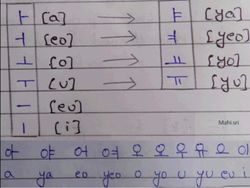 ㅏ [a] → ㅑ [ya]
ㅓ [eo] → ㅕ [yeo]
ㅗ [o] → ㅛ [yo]
ㅜ [u] → ㅠ [yu]
ㅡ [eu]
ㅣ [i]
Mahi sri
아 야 어 여 오 요 우 유 으 이
a ya eo yeo o yo u yu eu i